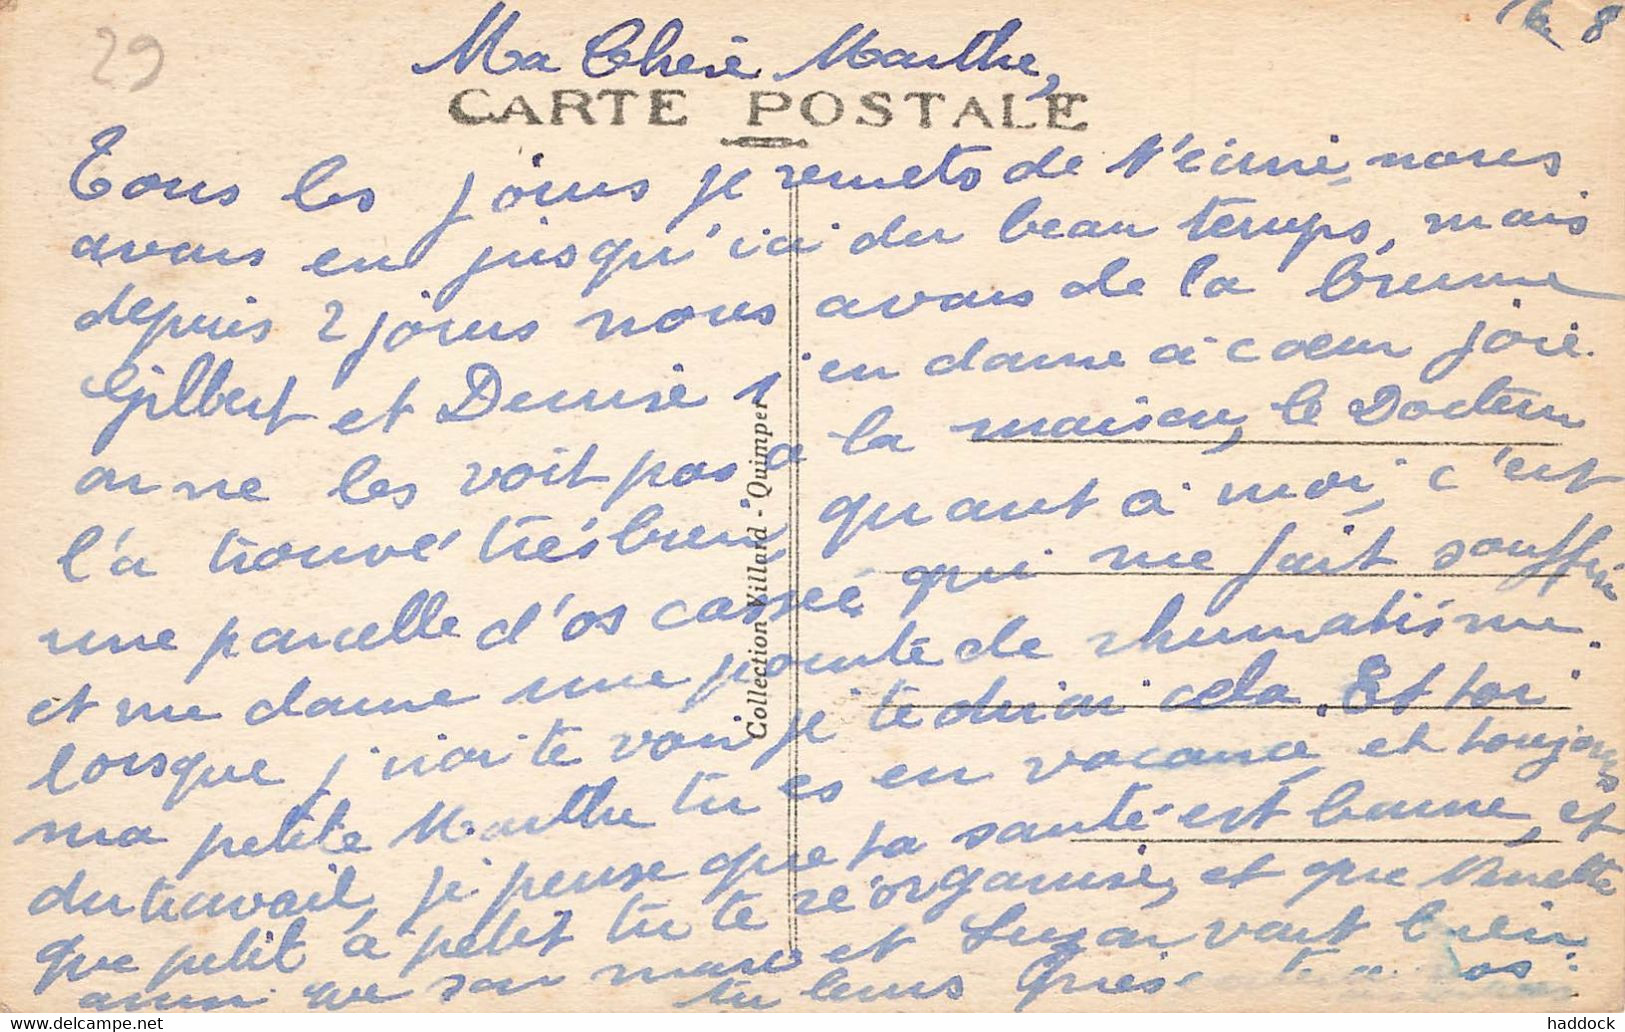 29
le 8
Ma Chère Marthe,
CARTE POSTALE
Tous les jours je remets de t'écrire, nous
avons eu jusqu'ici du beau temps, mais
depuis 2 jours nous avons de la brume
Gilbert et Denise s'en donne à coeur joie
on ne les voit pas à la maison, le Docteur
l'a trouvé très bien, quant à moi, c'est
une parcelle d'os cassée qui me fait souffrir
et me donne une pointe de rhumatisme.
lorsque j'irai te voir je te dirai cela. Et toi
ma petite Marthe tu es en vacance, et toujours
du travail, je pense que ta santé est bonne, et
que petit à petit tu te réorganise, et que Ninette
ainsi que son mari et Suzon vont bien.
tu leurs nos
Collection Villard - Quimper
delcampe.net
haddock